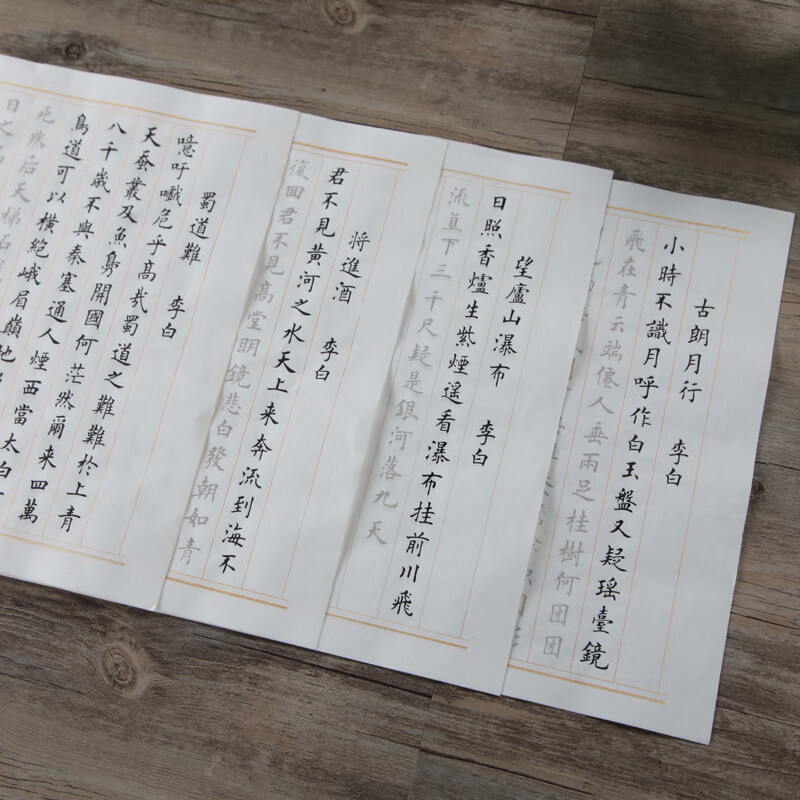 古朗月行 李白
小時不識月呼作白玉盤又疑瑤臺鏡
飛在青云端僊人垂兩足桂樹何団団
望廬山瀑布 李白
日照香爐生紫煙遥看瀑布挂前川飛
流直下三千尺疑是銀河落九天
将進酒 李白
君不見黄河之水天上来奔流到海不
復回君不見高堂明鏡悲白發朝如青
蜀道難 李白
噫吁嚱危乎高哉蜀道之難難於上青
天蚕叢及魚鳧開國何茫然爾来四萬
八千歲不與秦塞通人煙西當太白
鳥道可以橫絕峨眉巔地
死然后天梯石